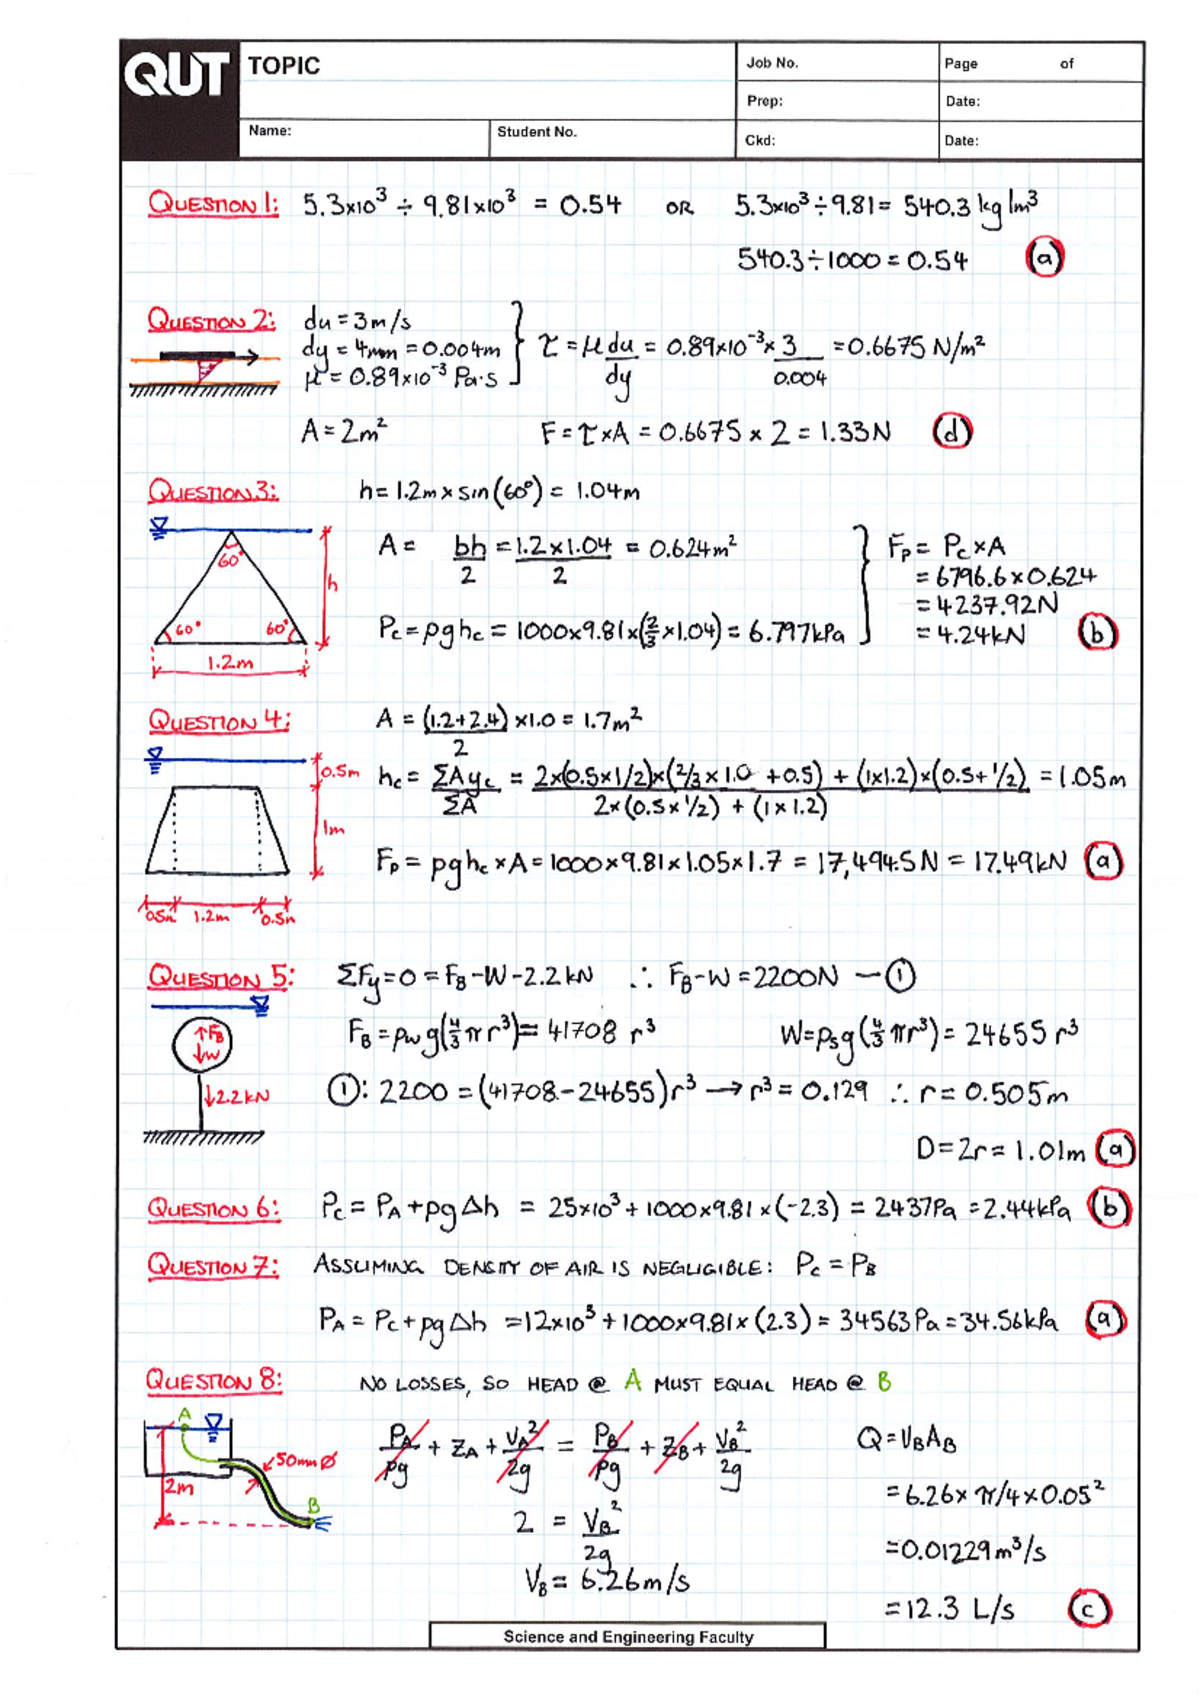 QUT TOPIC Job No. Page of
Prep: Date:
Name: Student No. Ckd: Date:
QUESTION 1: 5.3x10³ ÷ 9.81x10³ = 0.54 OR 5.3x10³ ÷ 9.81 = 540.3 kg/m³
540.3 ÷ 1000 = 0.54 (a)
QUESTION 2: du = 3m/s
dy = 4mm = 0.004m
μ = 0.89x10⁻³ Pa.s
τ = μ du/dy = 0.89x10⁻³ x 3/0.004 = 0.6675 N/m²
A = 2m² F = τ x A = 0.6675 x 2 = 1.33N (d)
QUESTION 3: h = 1.2m x sin(60°) = 1.04m
60°
60° 60°
h
1.2m
A = bh/2 = 1.2 x 1.04/2 = 0.624m²
Pc = ρghc = 1000x9.81x(2/3 x1.04) = 6.797kPa
Fp = Pc x A
= 6796.6 x 0.624
= 4237.92N
= 4.24kN (b)
QUESTION 4: A = (1.2+2.4)/2 x1.0 = 1.7m²
0.5m
1m
0.5m 1.2m 0.5m
hc = ΣAyc/ΣA = 2x(0.5x1/2)x(2/3 x 1.0 +0.5) + (1x1.2)x(0.5+1/2) / 2x(0.5x1/2) + (1x1.2) = 1.05m
Fp = ρghc x A = 1000x9.81x1.05x1.7 = 17,494.5N = 17.49kN (a)
QUESTION 5: ΣFy = 0 = FB - W - 2.2kN ∴ FB - W = 2200N — ①
↑FB
↓W
↓2.2kN
FB = ρwg(4/3 πr³) = 41708 r³ W = ρsg(4/3 πr³) = 24655 r³
①: 2200 = (41708 - 24655)r³ → r³ = 0.129 ∴ r = 0.505m
D = 2r = 1.01m (a)
QUESTION 6: Pc = PA + ρgΔh = 25x10³ + 1000x9.81x(-2.3) = 2437Pa = 2.44kPa (b)
QUESTION 7: ASSUMING DENSITY OF AIR IS NEGLIGIBLE: Pc = PB
PA = Pc + ρgΔh = 12x10³ + 1000x9.81x(2.3) = 34563Pa = 34.56kPa (a)
QUESTION 8: NO LOSSES, SO HEAD @ A MUST EQUAL HEAD @ B
A
50mmØ
2m
B
PA/ρg + ZA + VA²/2g = PB/ρg + ZB + VB²/2g
2 = VB²/2g
VB = 6.26m/s
Q = VBAB
= 6.26 x π/4 x 0.05²
= 0.01229m³/s
= 12.3 L/s (c)
Science and Engineering Faculty